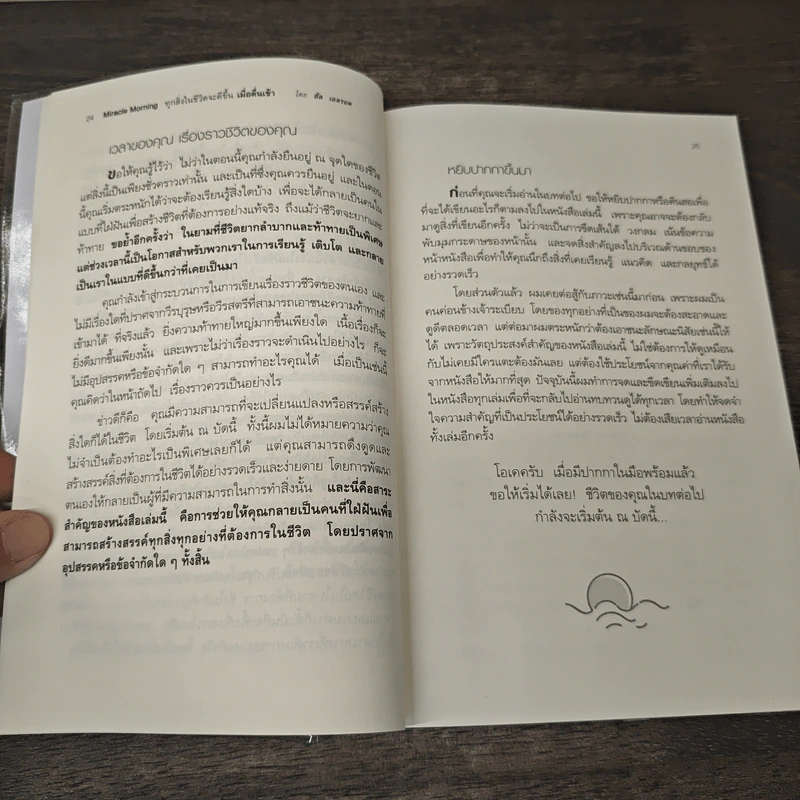 24 Miracle Morning ทุกสิ่งในชีวิตจะดีขึ้น เมื่อตื่นเช้า โดย ฮัล เอลรอด
เวลาของคุณ เรื่องราวชีวิตของคุณ
ขอให้คุณรู้ไว้ว่า ไม่ว่าในตอนนี้คุณกำลังยืนอยู่ ณ จุดใดของชีวิต
แต่สิ่งนี้เป็นเพียงชั่วคราวเท่านั้น และเป็นที่ซึ่งคุณควรยืนอยู่ และในตอน
นี้คุณเริ่มตระหนักได้ว่าจะต้องเรียนรู้สิ่งใดบ้าง เพื่อจะได้กลายเป็นคนใน
แบบที่ใฝ่ฝันเพื่อสร้างชีวิตที่ต้องการอย่างแท้จริง ถึงแม้ว่าชีวิตจะยากและ
ท้าทาย ขอย้ำอีกครั้งว่า ในยามที่ชีวิตยากลำบากและท้าทายเป็นพิเศษ
แต่ช่วงเวลานี้เป็นโอกาสสำหรับพวกเราในการเรียนรู้ เติบโต และกลาย
เป็นเราในแบบที่ดีขึ้นกว่าที่เคยเป็นมา
คุณกำลังเข้าสู่กระบวนการในการเขียนเรื่องราวชีวิตของตนเอง และ
ไม่มีเรื่องใดที่ปราศจากวีรบุรุษหรือวีรสตรีที่สามารถเอาชนะความท้าทายที่
เข้ามาได้ ที่จริงแล้ว ยิ่งความท้าทายใหญ่มากขึ้นเพียงใด เนื้อเรื่องก็จะ
ยิ่งดีมากขึ้นเพียงนั้น และเพราะไม่ว่าเรื่องราวจะดำเนินไปอย่างไร ก็จะ
ไม่มีอุปสรรคหรือข้อจำกัดใด ๆ สามารถทำอะไรคุณได้ เมื่อเป็นเช่นนี้
คุณคิดว่าในหน้าถัดไป เรื่องราวควรเป็นอย่างไร
ข่าวดีก็คือ คุณมีความสามารถที่จะเปลี่ยนแปลงหรือสรรค์สร้าง
สิ่งใดก็ได้ในชีวิต โดยเริ่มต้น ณ บัดนี้ ทั้งนี้ผมไม่ได้หมายความว่าคุณ
ไม่จำเป็นต้องทำอะไรเป็นพิเศษเลยก็ได้ แต่คุณสามารถดึงดูดและ
สร้างสรรค์สิ่งที่ต้องการในชีวิตได้อย่างรวดเร็วและง่ายดาย โดยการพัฒนา
ตนเองให้กลายเป็นผู้ที่มีความสามารถในการทำสิ่งนั้น และนี่คือสาระ
สำคัญของหนังสือเล่มนี้ คือการช่วยให้คุณกลายเป็นคนที่ใฝ่ฝันเพื่อ
สามารถสร้างสรรค์ทุกสิ่งทุกอย่างที่ต้องการในชีวิต โดยปราศจาก
อุปสรรคหรือข้อจำกัดใด ๆ ทั้งสิ้น
25
หยิบปากกาขึ้นมา
ก่อนที่คุณจะเริ่มอ่านในบทต่อไป ขอให้หยิบปากกาหรือดินสอเพื่อ
ที่จะได้เขียนอะไรก็ตามลงไปในหนังสือเล่มนี้ เพราะคุณอาจจะต้องกลับ
มาดูสิ่งที่เขียนอีกครั้ง ไม่ว่าจะเป็นการขีดเส้นใต้ วงกลม เน้นข้อความ
พับมุมกระดาษของหน้านั้น และจดสิ่งสำคัญลงไปบริเวณด้านขอบของ
หน้าหนังสือเพื่อทำให้คุณนึกถึงสิ่งที่เคยเรียนรู้ แนวคิด และกลยุทธ์ได้
อย่างรวดเร็ว
โดยส่วนตัวแล้ว ผมเคยต่อสู้กับภาวะเช่นนี้มาก่อน เพราะผมเป็น
คนค่อนข้างเจ้าระเบียบ โดยของทุกอย่างที่เป็นของผมจะต้องสะอาดและ
ดูดีตลอดเวลา แต่ต่อมาผมตระหนักว่าต้องเอาชนะลักษณะนิสัยเช่นนี้ให้
ได้ เพราะวัตถุประสงค์สำคัญของหนังสือเล่มนี้ ไม่ใช่ต้องการให้ดูเหมือน
กับไม่เคยมีใครแตะต้องมันเลย แต่ต้องใช้ประโยชน์จากคุณค่าที่เราได้รับ
จากหนังสือให้มากที่สุด ปัจจุบันนี้ผมทำการจดและขีดเขียนเพิ่มเติมลงไป
ในหนังสือทุกเล่มเพื่อที่จะกลับไปอ่านทบทวนดูได้ทุกเวลา โดยทำให้จดจำ
ใจความสำคัญที่เป็นประโยชน์ได้อย่างรวดเร็ว ไม่ต้องเสียเวลาอ่านหนังสือ
ทั้งเล่มอีกครั้ง
โอเคครับ เมื่อมีปากกาในมือพร้อมแล้ว
ขอให้เริ่มได้เลย! ชีวิตของคุณในบทต่อไป
กำลังจะเริ่มต้น ณ บัดนี้...